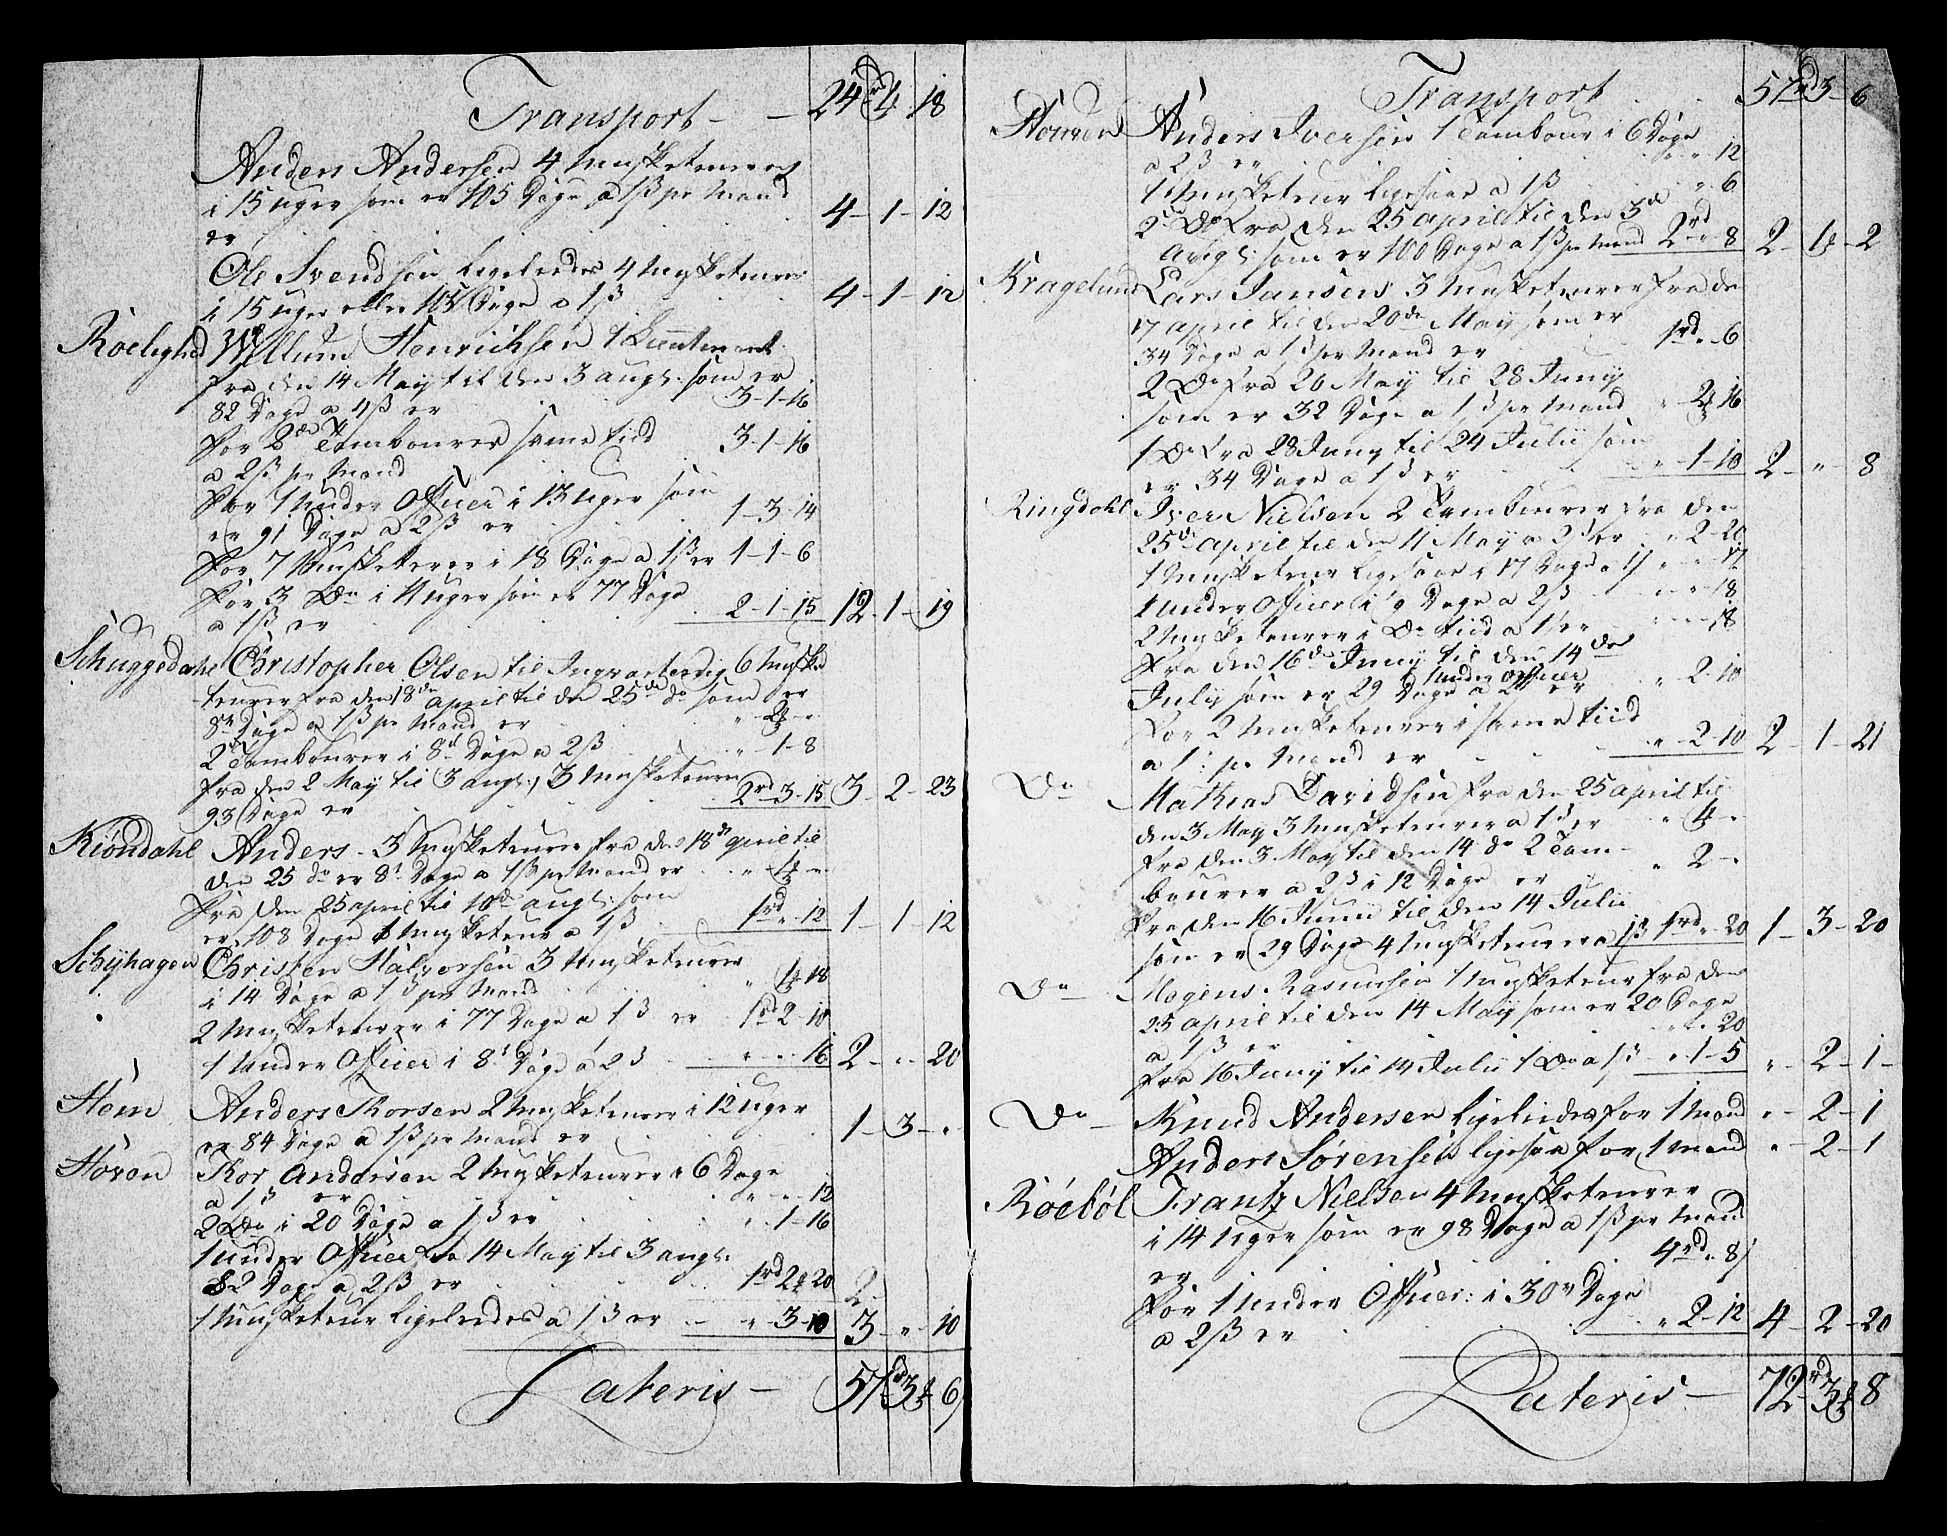 Transport — 24 rd 4 18
Anders Andersen 4 Musketeurer
i 15 uger som er 105 Dage a 1ß pr Mand
er 4-1-12
Ole Svendsen Ligeledes 4 Musketeurer
i 15 uger eller 105 Dage a 1ß 4-1-12
Roelighed Willum Henrichsen 1 Lieutenant
fra den 14 May til den 3 augs: som er
82 Dage a 4ß er 3-1-16
for 2de Tambourer samme tiid
a 2ß pr Mand 3-1-16
for 1 under Officer i 13 uger som
er 91 Dage a 2ß er 1-3-14
for 7 Musketerer i 18 Dage a 1ß er 1-1-6
for 3 Do i 11 uger som er 77 Dage
a 1ß er 2-1-15 12-1-19
Schuggedahl Christopher Olsen til Inqvartering 6 Muske
teurer fra den 18de april til den 25de do som er
8te Dage a 1ß pr Mand er " 2 "
2 Tambourer i 8te Dage a 2ß " 1-8
fra den 2 May til 3 augs:, 3 Musketeurer
93 Dage er 2rd 3-15 3-2-23
Kiöndahl Anders - 3 Musketeurer fra den 18de april til
den 25 do er 8te Dage a 1ß pr Mand er " 1 "
fra den 25 april til 10de augs: som
er 108 Dage 1 Musketeur a 1ß 1rd " 12 1-1-12
Schyhagen Christen Halvorsen 3 Musketeurer
i 14 Dage a 1ß pr Mand " 1 18
2 Musketeurer i 77 Dage a 1ß er 1rd 2-10
1 Under Officer i 8te Dage a 2ß " " 16 2 - " - 20
Hem Anders Thorsen 2 Musketeurer i 12 uger
er 84 Dage a 1ß pr Mand er 1-3-"
Hoven Thor Andersen 2 Musketeurer i 6 Dage
a 1ß er " " 12
2 Do i 20 Dage a 1ß er " 1-16
1 under Officer fra 14 May til 3 augs:
82 Dage a 2ß er 1rd 2 20
1 Musketeur Ligeledes a 1ß er " 3-10 3 - " - 10
Lateris — 57 rd 3 6
Transport 57 rd 3-6
Houven Anders Iversen 1 Tambour i 6 Dage
a 2ß er " " 12
1 Musketeur Ligesaa a 1ß " 6
2 Do fra den 25 april til den 3de
augs: som er 100 Dage a 1ß pr Mand 2rd " 8 2-1-2
Kragelund Lars Jansen 3 Musketeurer fra de
17 april til den 20de May som er
34 Dage a 1ß pr Mand er 1rd " 6
2 Do fra 26 May til 28 Juny
som er 32 Dage a 1ß pr Mand " 2 16
1 Do fra 28 Juny til 24 Julii som
er 34 Dage a 1ß er " 1-10 2 - " - 8
Ringdahl Iver Nielsen 2 Tambourer fra den
25de april til den 11 May a 2ß er " 2-20
1 Musketeur Ligesaa i 17 Dage a 1ß " " 17
1 under Officer i 9 Dage a 2ß " " 18
2 Musketeurer i Do tiid a 1ß er " " 18
fra den 16de Juny til den 14de
July som er 29 Dage 1 under Officer a 2ß er " 2-10
for 2 Musketeurer i samme tiid
a 1: pr Mand er " 2-10 2-1-21
Do Mathias Davidsen fra den 25 april til
den 3 May 3 Musketeurer a 1ß er " 1 "
fra den 3 May til den 14 do 2 Tam-
bourer a 2ß i 12 Dage er " 2-"
fra den 16 Juny til den 14 Julii
som er 29 Dage 4 Musketeurer a 1ß 1rd " 20 1-3-20
Do Mogens Rasmusen 1 Musketeur fra den
25 april til den 14 May som er 20 Dage
a 1ß er " " 20
fra 16 Juny til 14 Julii 1 Do a 1ß " 1-5 " - 2-1-
Do Knud Andersen Ligeledes for 1 Mand " - 2-1
Anders Sørensen ligesaa for 1 Mand " - 2-1
Röeböl Frantz Nielsen 4 Musketeurer
i 14 uger som er 98 Dage a 1ß pr Mand
er 4rd " 8
for 1 Under Officer: i 30 Dage
a 2ß er " 2-12 4-2-20
Lateris — 72 rd 3 8